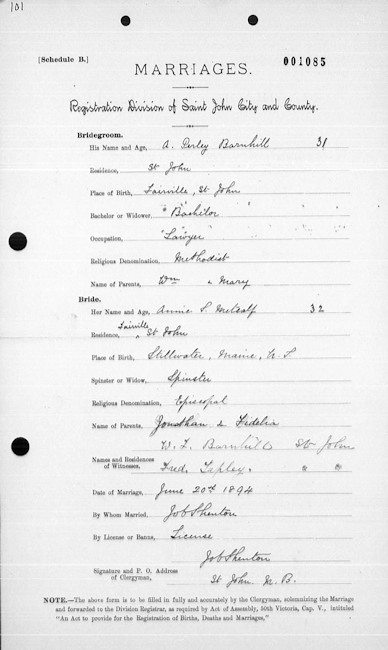 101
[Schedule B.]
001085
MARRIAGES.
Registration Division of Saint John City and County.
Bridegroom.
His Name and Age, A. Perley Barnhill 31
Residence, St John
Place of Birth, Fairville, St John
Bachelor or Widower, "Bachelor
Occupation, "Lawyer"
Religious Denomination, Methodist
Name of Parents, Wm & Mary
Bride.
Her Name and Age, Annie S. Metcalf 32
Residence, Fairville, St John
Place of Birth, Stillwater, Maine, U. S
Spinster or Widow, Spinster
Religious Denomination, Episcopal
Name of Parents, Jonathan & Fidelia
W. F. Barnhill St John
Names and Residences
of Witnesses, Fred. Tapley. " "
Date of Marriage, June 20th 1894
By Whom Married, Job Shenton
By License or Banns, License
Job Shenton
Signature and P. O. Address
of Clergyman, St John N. B.
NOTE.—The above form is to be filled in fully and accurately by the Clergyman, solemnizing the Marriage
and forwarded to the Division Registrar, as required by Act of Assembly, 50th Victoria, Cap. V., intituled
"An Act to provide for the Registration of Births, Deaths and Marriages,"